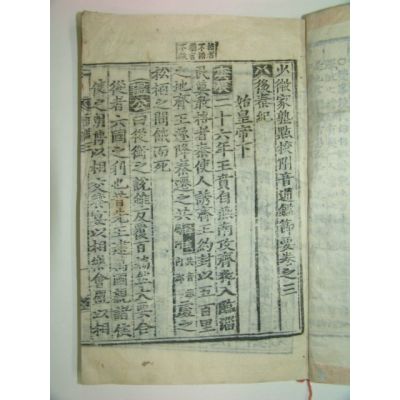 少微家塾點校附音通鑑節要卷之三
後秦紀
始皇帝下
庚辰二十六年王賁自燕南攻齊猝入臨淄
民莫敢格者秦使人誘齊王約封以五百里
之地齊王遂降秦遷之共處之
松柏之間餓而死
溫公曰從衡之說雖反覆百端然大要合
從者六國之利也昔先王建萬國親諸侯
使之朝聘以相交饗宴以相樂會盟以相